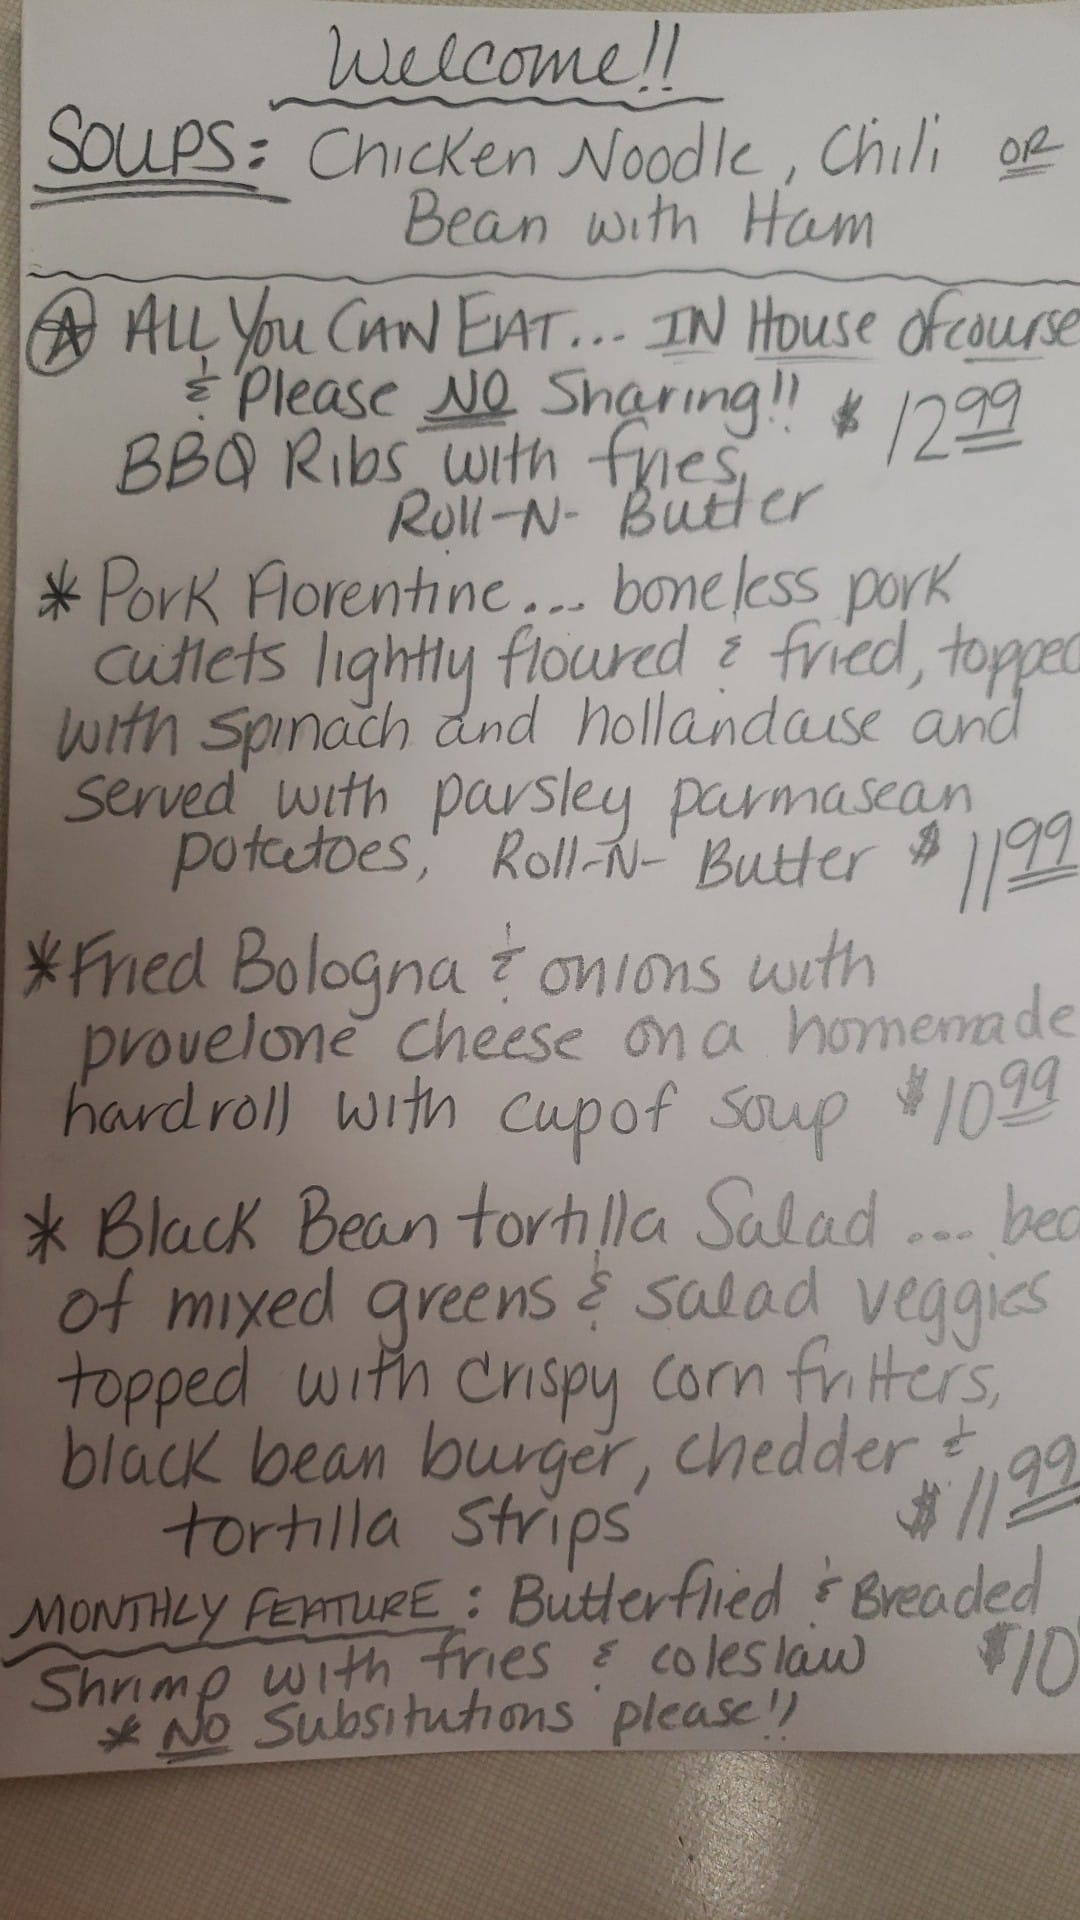 Welcome!!
SOUPS: Chicken Noodle, Chili OR
Bean with Ham
ALL You CAN EAT... IN House ofcourse
& Please NO Sharing!! $12.99
BBQ Ribs with fries,
Roll-N- Butter
* Pork Florentine... boneless pork
cutlets lightly floured & fried, topped
with spinach and hollandause and
served with parsley parmasean
potatoes, Roll-N- Butter $11.99
* Fried Bologna & onions with
provelone cheese on a homemade
hardroll with cup of soup $10.99
* Black Bean tortilla Salad ... bed
of mixed greens & salad veggies
topped with crispy corn fritters,
black bean burger, chedder &
tortilla strips $11.99
MONTHLY FEATURE: Butterflied & Breaded
Shrimp with fries & coleslaw $10
* NO Subsitutions please!!